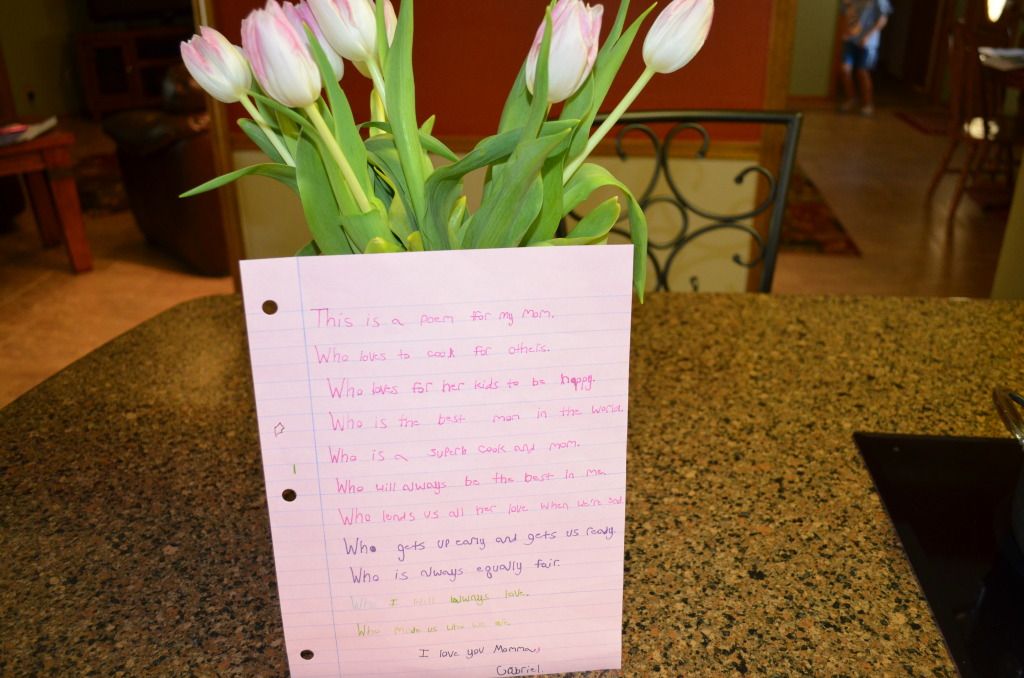 This is a poem for my Mom.
Who loves to cook for others.
Who loves for her kids to be happy.
Who is the best mom in the world.
Who is a superb cook and mom.
Who will always be the best in me.
Who lends us all her love when we're sad
Who gets up early and gets us ready.
Who is always equally fair.
Who I will always love.
Who made us who we are.
I love you Momma,
Gabriel.